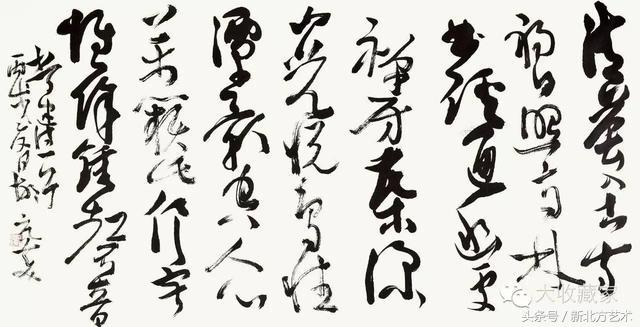 清晨入古寺
初日照高林
曲徑通幽處
禪房花木深
山光悅鳥性
潭影空人心
萬籟此俱寂
惟餘鍾磬音
常建詩一首
大收藏家
头条号 / 新北方艺术